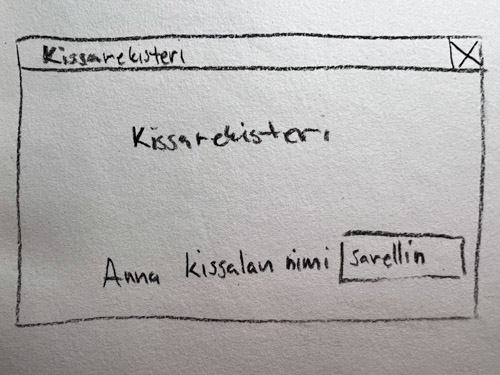 Kissarekisteri
Kissarekisteri
Anna kissalan nimi sarellin